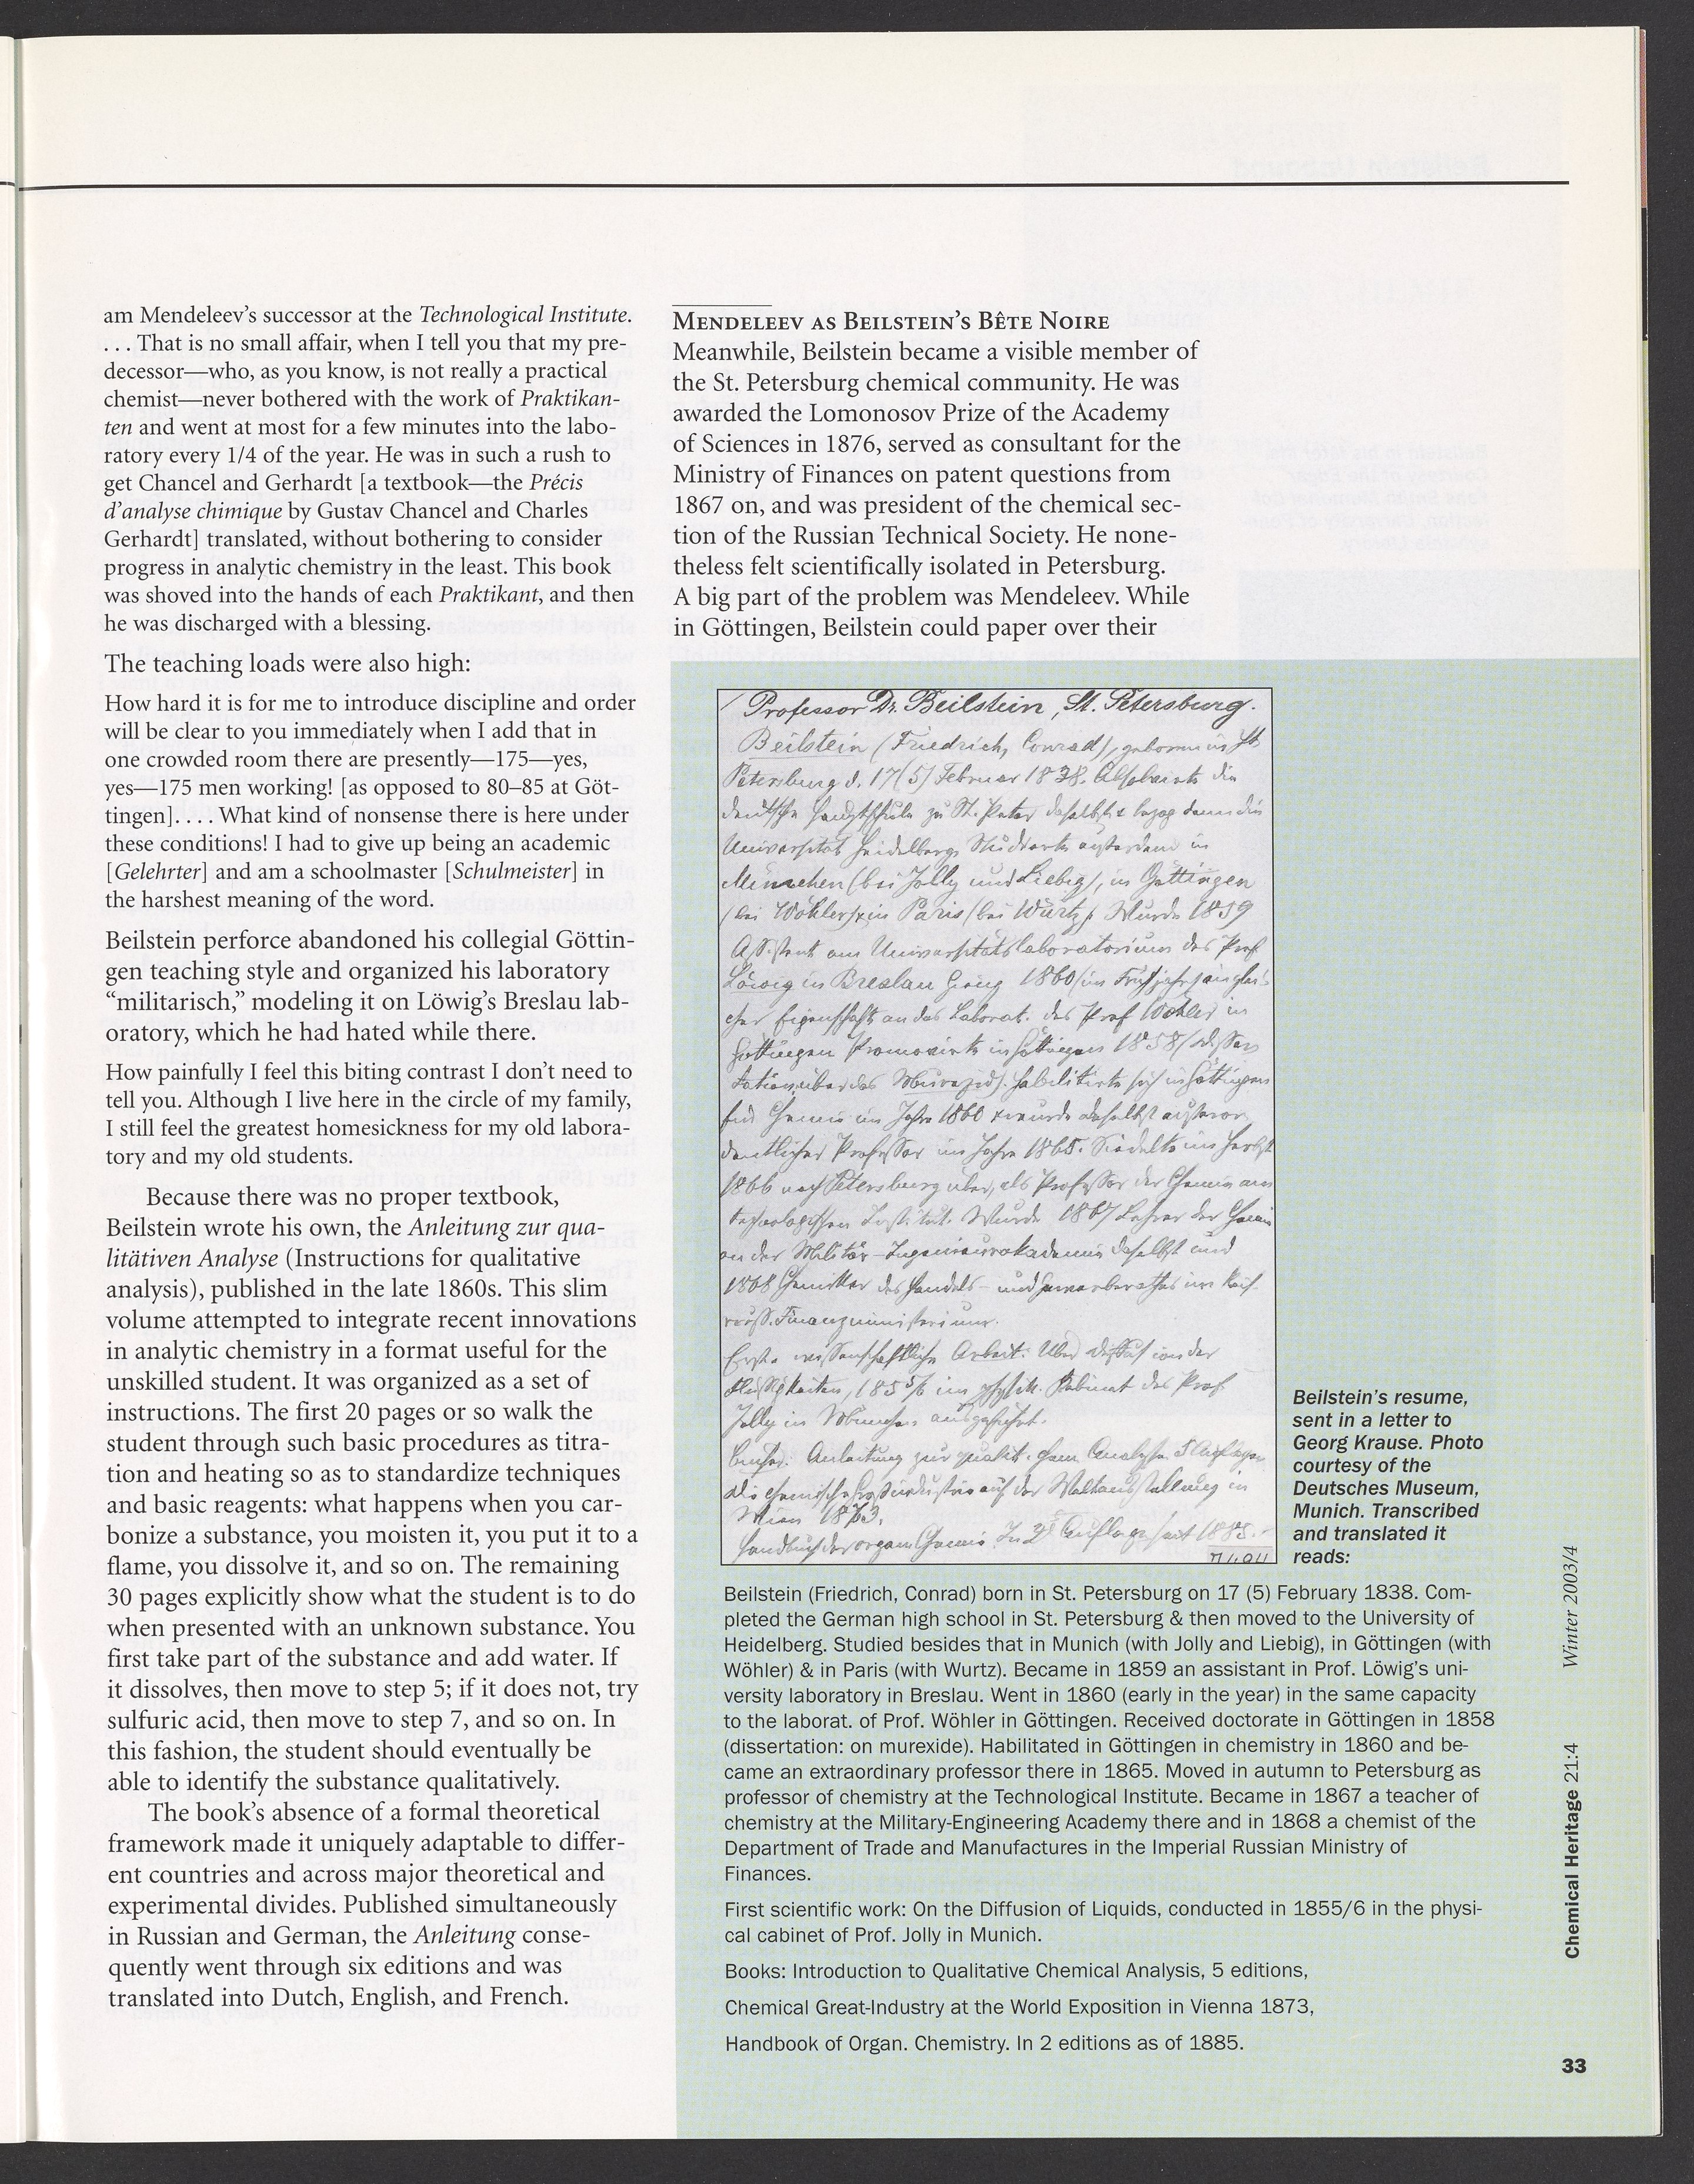 am Mendeleev’s successor at the Technological Institute.
. . . That is no small affair, when I tell you that my pre-
decessor—who, as you know, is not really a practical
chemist—never bothered with the work of Praktikan-
ten and went at most for a few minutes into the labo-
ratory every 1/4 of the year. He was in such a rush to
get Chancel and Gerhardt [a textbook—the Précis
d’analyse chimique by Gustav Chancel and Charles
Gerhardt] translated, without bothering to consider
progress in analytic chemistry in the least. This book
was shoved into the hands of each Praktikant, and then
he was discharged with a blessing.
The teaching loads were also high:
How hard it is for me to introduce discipline and order
will be clear to you immediately when I add that in
one crowded room there are presently—175—yes,
yes—175 men working! [as opposed to 80–85 at Göt-
tingen]. . . . What kind of nonsense there is here under
these conditions! I had to give up being an academic
[Gelehrter] and am a schoolmaster [Schulmeister] in
the harshest meaning of the word.
Beilstein perforce abandoned his collegial Göttin-
gen teaching style and organized his laboratory
“militarisch,” modeling it on Löwig’s Breslau lab-
oratory, which he had hated while there.
How painfully I feel this biting contrast I don’t need to
tell you. Although I live here in the circle of my family,
I still feel the greatest homesickness for my old labora-
tory and my old students.
Because there was no proper textbook,
Beilstein wrote his own, the Anleitung zur qua-
litätiven Analyse (Instructions for qualitative
analysis), published in the late 1860s. This slim
volume attempted to integrate recent innovations
in analytic chemistry in a format useful for the
unskilled student. It was organized as a set of
instructions. The first 20 pages or so walk the
student through such basic procedures as titra-
tion and heating so as to standardize techniques
and basic reagents: what happens when you car-
bonize a substance, you moisten it, you put it to a
flame, you dissolve it, and so on. The remaining
30 pages explicitly show what the student is to do
when presented with an unknown substance. You
first take part of the substance and add water. If
it dissolves, then move to step 5; if it does not, try
sulfuric acid, then move to step 7, and so on. In
this fashion, the student should eventually be
able to identify the substance qualitatively.
The book’s absence of a formal theoretical
framework made it uniquely adaptable to differ-
ent countries and across major theoretical and
experimental divides. Published simultaneously
in Russian and German, the Anleitung conse-
quently went through six editions and was
translated into Dutch, English, and French.
MENDELEEV AS BEILSTEIN’S BÊTE NOIRE
Meanwhile, Beilstein became a visible member of
the St. Petersburg chemical community. He was
awarded the Lomonosov Prize of the Academy
of Sciences in 1876, served as consultant for the
Ministry of Finances on patent questions from
1867 on, and was president of the chemical sec-
tion of the Russian Technical Society. He none-
theless felt scientifically isolated in Petersburg.
A big part of the problem was Mendeleev. While
in Göttingen, Beilstein could paper over their
Professor Dr. Beilstein, St. Petersburg.
Beilstein (Friedrich, Conrad), geboren in St.
Petersburg d. 17(5) Februar 1838. Absolvirte die
deutsche Hauptschule zu St. Peter daselbst & bezog dann die
Universität Heidelberg. Studierte ausserdem in
München (bei Jolly und Liebig), in Göttingen
(bei Wöhler) & in Paris (bei Würtz). Wurde 1859
Assistent am Universitätslaboratorium des Prof.
Löwig in Breslau. Ging 1860 (im Frühjahr) in glei-
cher Eigenschaft an das Laborat. des Prof. Wöhler in
Göttingen. Promovirte in Göttingen 1858 (Disser-
tation über das Murexid). Habilitirte sich in Göttingen
für Chemie im Jahre 1860 & wurde daselbst ausseror-
dentlicher Professor im Jahre 1865. Siedelte im Herbst
1866 nach Petersburg über, als Professor der Chemie am
technologischen Institut. Wurde 1867 Lehrer der Chemie
an der Militär-Ingenieurakademie daselbst und
1868 Chemiker des Handels- und Gewerberathes im Kais.
russ. Finanzministerium.
Erste wissenschaftliche Arbeit: Über Diffusion der
Flüssigkeiten, 1855/6 im physik. Kabinet des Prof.
Jolly in München ausgeführt.
Bücher: Anleitung zur qualit. chem. Analyse. 5 Auflagen
Die chemische Grossindustrie auf der Weltausstellung in
Wien 1873.
Handbuch der organ. Chemie. In 2 Auflage seit 1885.
Beilstein’s resume,
sent in a letter to
Georg Krause. Photo
courtesy of the
Deutsches Museum,
Munich. Transcribed
and translated it
reads:
Beilstein (Friedrich, Conrad) born in St. Petersburg on 17 (5) February 1838. Com-
pleted the German high school in St. Petersburg & then moved to the University of
Heidelberg. Studied besides that in Munich (with Jolly and Liebig), in Göttingen (with
Wöhler) & in Paris (with Wurtz). Became in 1859 an assistant in Prof. Löwig’s uni-
versity laboratory in Breslau. Went in 1860 (early in the year) in the same capacity
to the laborat. of Prof. Wöhler in Göttingen. Received doctorate in Göttingen in 1858
(dissertation: on murexide). Habilitated in Göttingen in chemistry in 1860 and be-
came an extraordinary professor there in 1865. Moved in autumn to Petersburg as
professor of chemistry at the Technological Institute. Became in 1867 a teacher of
chemistry at the Military-Engineering Academy there and in 1868 a chemist of the
Department of Trade and Manufactures in the Imperial Russian Ministry of
Finances.
First scientific work: On the Diffusion of Liquids, conducted in 1855/6 in the physi-
cal cabinet of Prof. Jolly in Munich.
Books: Introduction to Qualitative Chemical Analysis, 5 editions,
Chemical Great-Industry at the World Exposition in Vienna 1873,
Handbook of Organ. Chemistry. In 2 editions as of 1885.
Chemical Heritage 21:4 Winter 2003/4
33